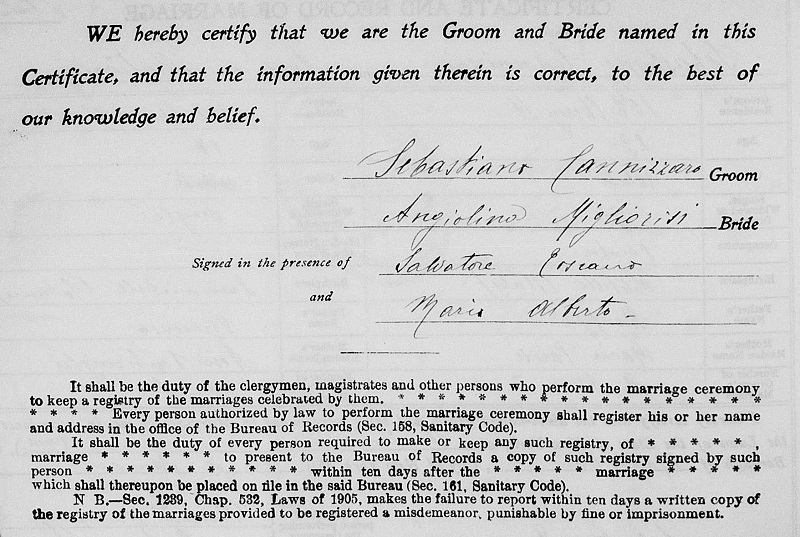 WE hereby certify that we are the Groom and Bride named in this
Certificate, and that the information given therein is correct, to the best of
our knowledge and belief.
Sebastiano Cannizzaro Groom
Angiolina Migliorisi Bride
Signed in the presence of Salvatore Toscano
and Maria Alberto
It shall be the duty of the clergymen, magistrates and other persons who perform the marriage ceremony
to keep a registry of the marriages celebrated by them. * * * * * * * * * * * * * * * * * *
* * * * Every person authorized by law to perform the marriage ceremony shall register his or her name
and address in the office of the Bureau of Records (Sec. 158, Sanitary Code).
It shall be the duty of every person required to make or keep any such registry, of * * * * * ,
marriage * * * * * * to present to the Bureau of Records a copy of such registry signed by such
person * * * * * * * * * * * within ten days after the * * * * * marriage * * * * *
which shall thereupon be placed on file in the said Bureau (Sec. 161, Sanitary Code).
N B.—Sec. 1239, Chap. 532, Laws of 1905, makes the failure to report within ten days a written copy of
the registry of the marriages provided to be registered a misdemeanor, punishable by fine or imprisonment.